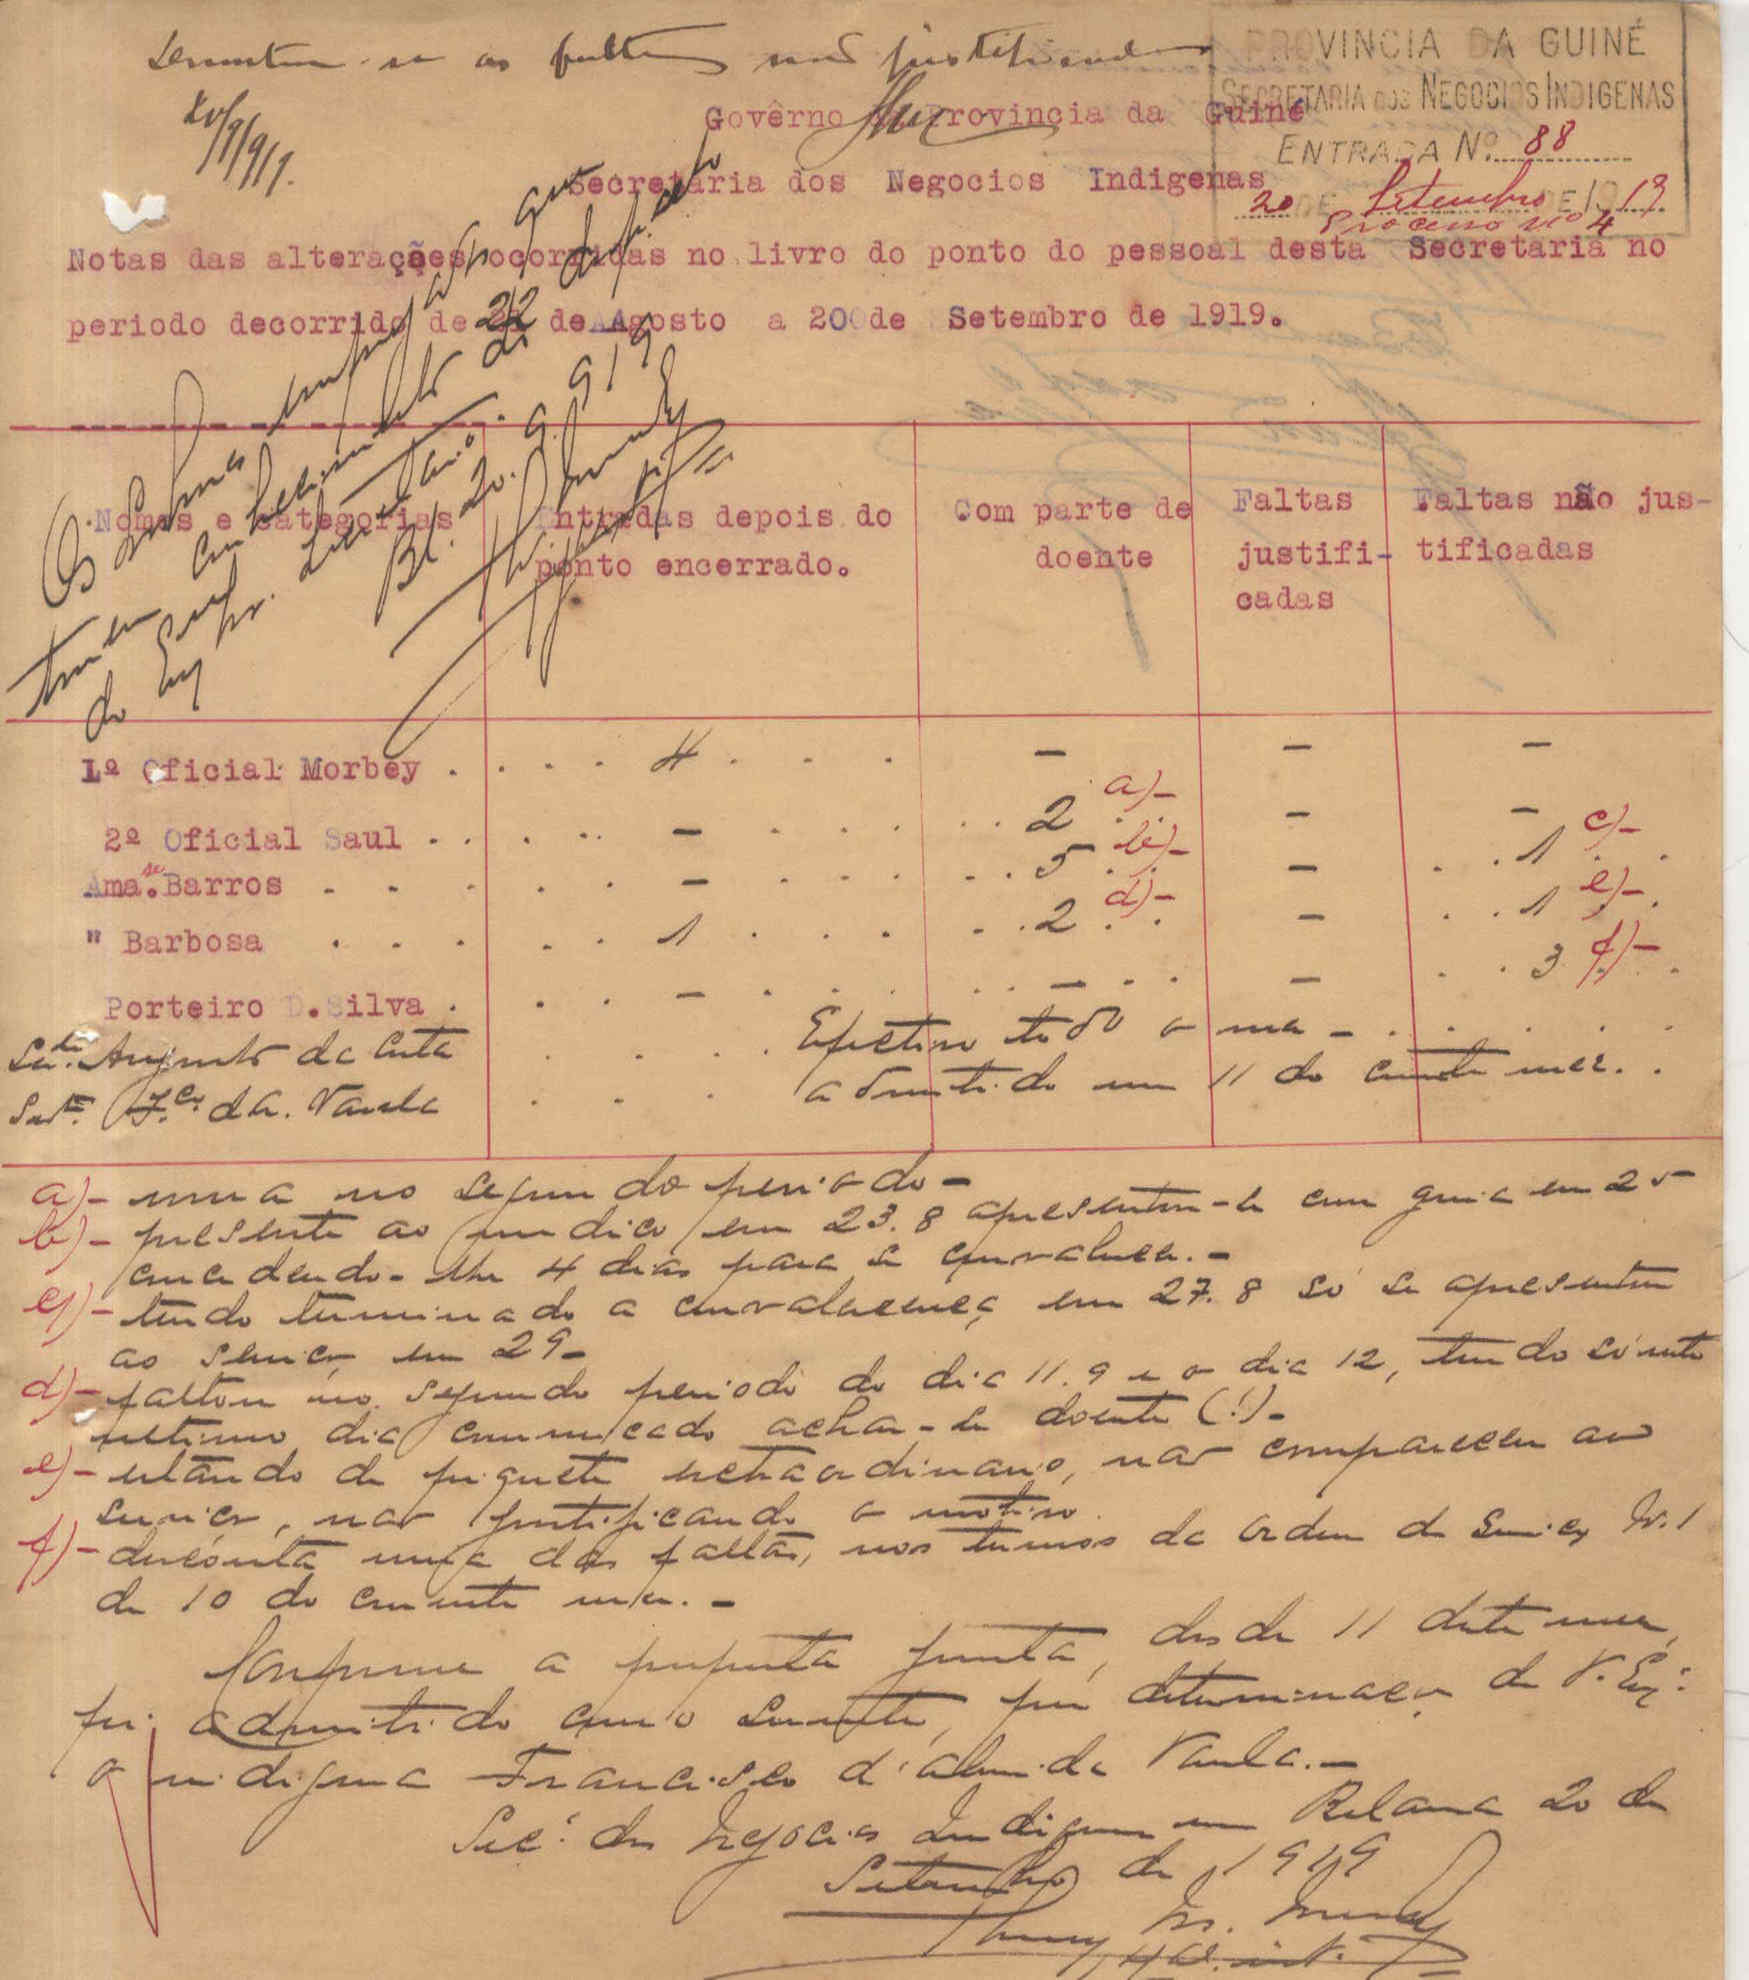 as faltas não justificadas
PROVINCIA DA GUINÉ
SECRETARIA DOS NEGOCIOS INDIGENAS
ENTRADA Nº 88
20 DE Setembro DE 1919
Processo nº 4
Govêrno da Provincia da Guiné
Secretaria dos Negocios Indigenas
Notas das alterações ocorridas no livro do ponto do pessoal desta Secretaria no
periodo decorrido de 22 de Agosto a 20 de Setembro de 1919.
Os que
tomem conhecimento do
do Exmo Sr. Secretario.
Bl. 20.9.919
Nomes e categorias
Entradas depois do
ponto encerrado.
Com parte de
doente
Faltas
justifi-
cadas
Faltas não jus-
tificadas
1º Oficial Morbey . . . . 4 . . . - - -
2º Oficial Saul . . . . - . . . 2 a)- - -
Ama.se Barros . . . . - . . . 5 b)- - 1 c)-
" Barbosa . . . . 1 . . . 2 d)- - 1 e)-
Porteiro D. Silva . . . - . . . - - 3 f)-
Sete. Augusto da Costa . . . Efectivo todo o mes - . . .
Sete. Fco. d'A. Varela . . . admitido em 11 do corrente mez. .
a)- uma no segundo periodo -
b)- presente ao medico em 23.8 apresentou-se com guia em 25
concedendo-lhe 4 dias para se convalescer. -
c)- tendo terminado a convalescença em 27.8 só se apresentou
ao serviço em 29 -
d)- faltou no segundo periodo do dia 11.9 e o dia 12, tendo sómente
ultimo dia comunicado achar-se doente (!) -
e)- estando de piquete extraordinario, não compareceu ao
serviço, não justificando o motivo.
f)- desconta uma das faltas, nos termos da ordem de Serviço Nº. 1
de 10 do corrente mez. -
Conforme a proposta junta, desde 11 deste mez,
foi admitido como servente, por determinação de V. Exª.
o indigena Francisco d'Almeida Varela. -
Secª. dos Negocios Indigenas em Bolama 20 de
Setembro de 1919